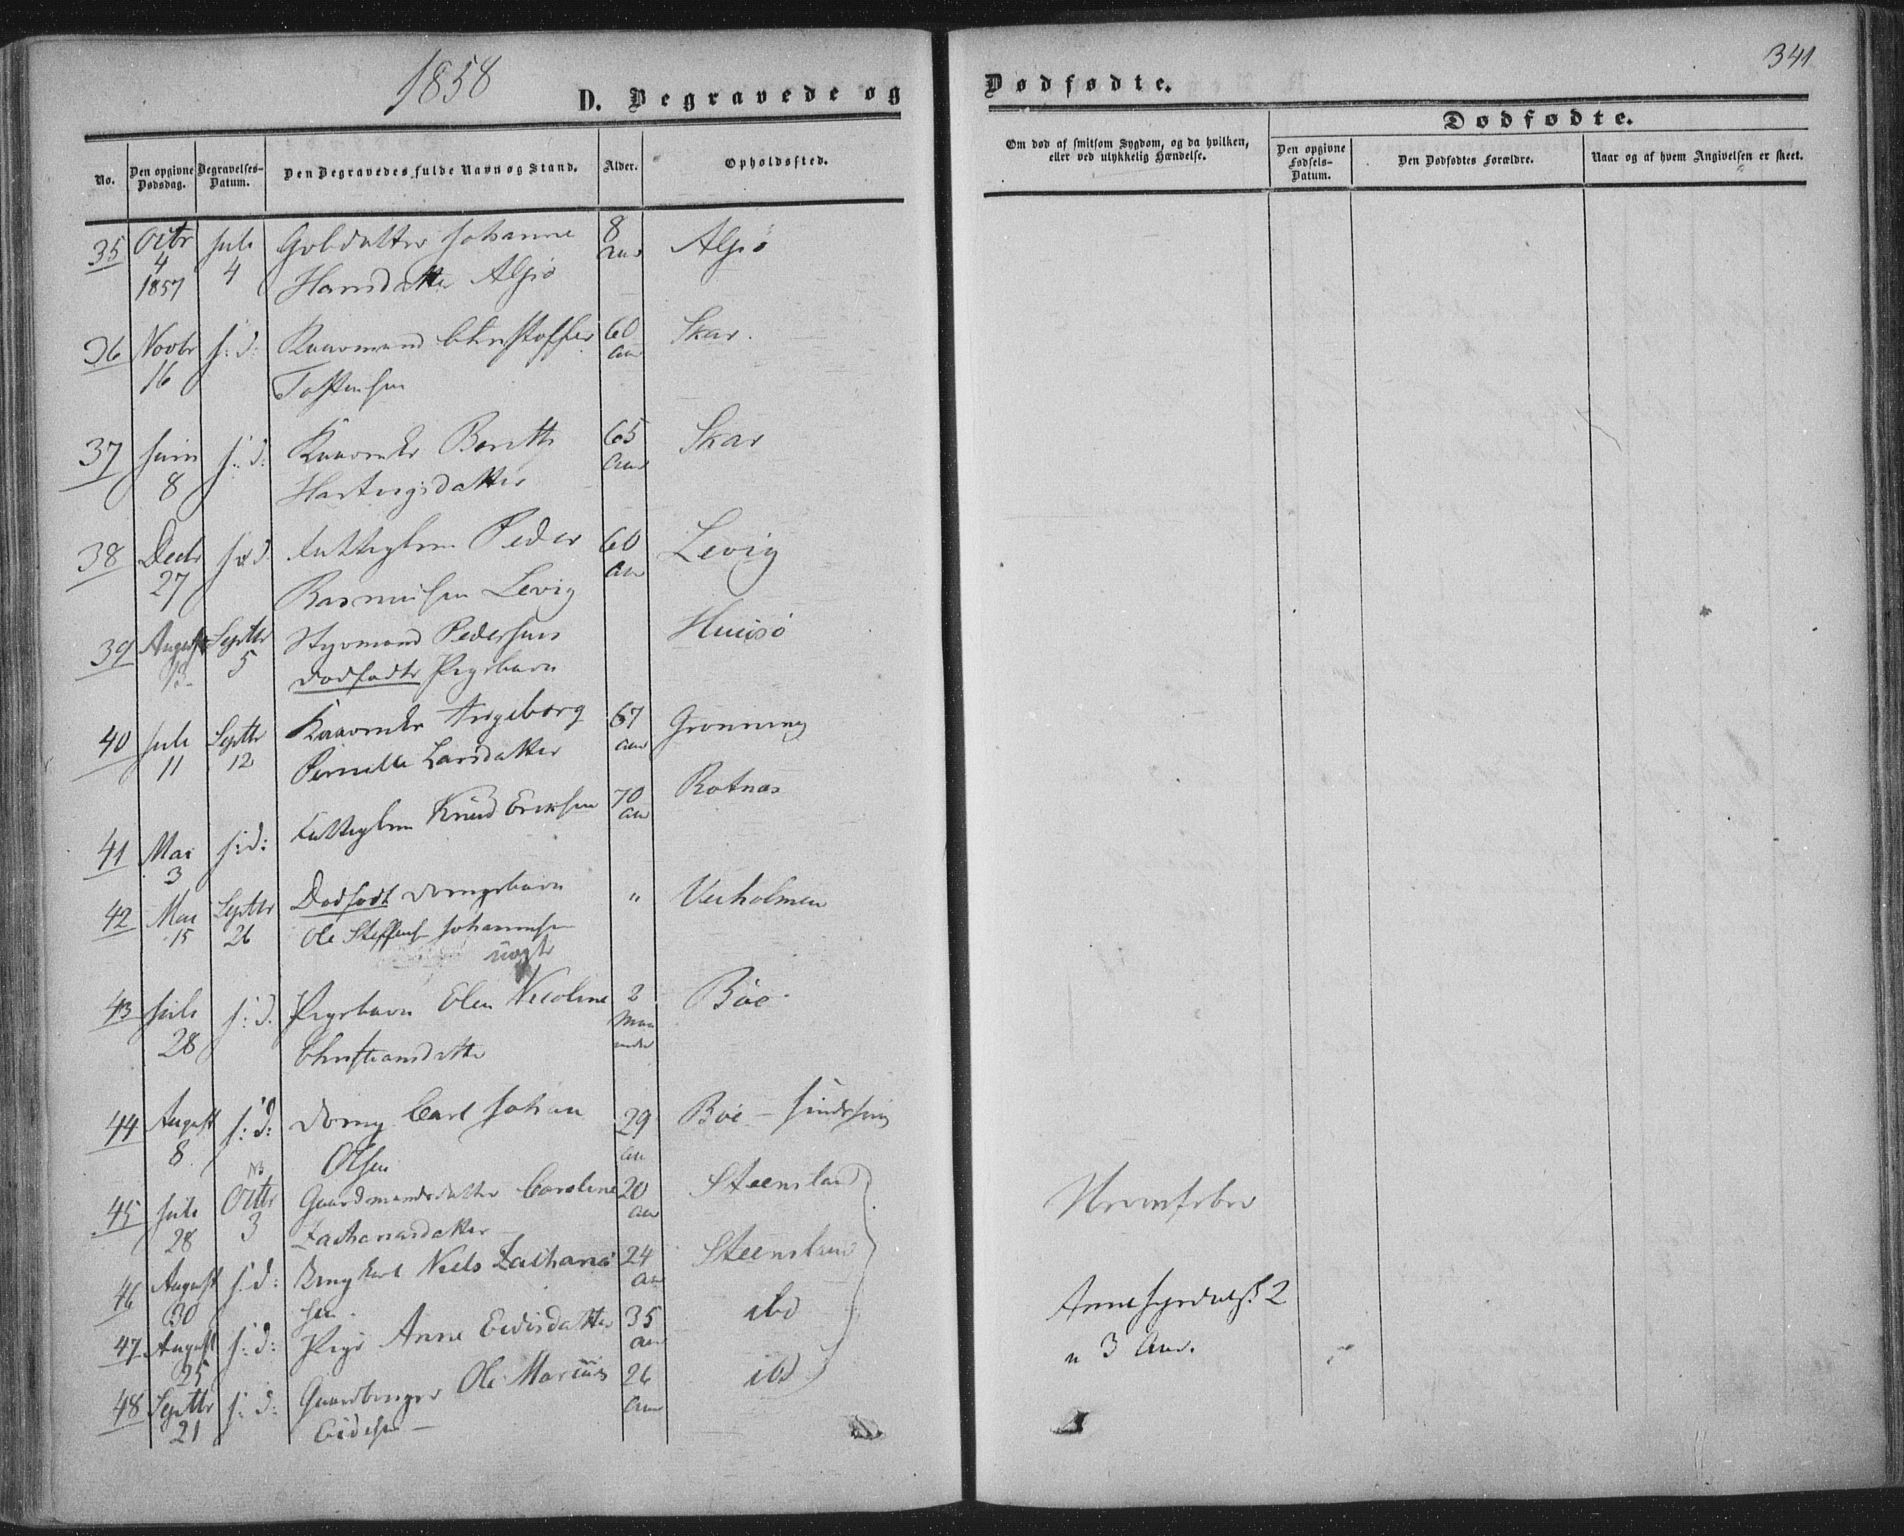 1858
D. Begravede og
Dødfødte.
341
No.
Den opgivne Dødsdag.
Begravelses-Datum.
Den Begravedes fulde Navn og Stand.
Alder.
Opholdssted.
Om død af smitsom Sygdom, og da hvilken, eller ved ulykkelig Hændelse.
Dødfødte.
Den opgivne Fødsels-Datum.
Den Dødfødtes Forældre.
Naar og af hvem Angivelsen er skeet.
35 Octbr 4 1857 Juli 4 Johanne 8 Aar
Hansdatter
36 Novbr 16 s: d: Christoffer 60 Aar Skar.
Tostensen
37 Juni 8 s: d: Berith 65 Aar Skar
Hartvigsdatter
38 Decbr 27 s: d: Peder 60 Aar Levig
Rasmussen Levig
39 August 13 Septbr 5 Styrmand Pedersens Huusø
dødfødte Pigebarn
40 Juli 11 Septbr 12 Ingeborg 67 Aar Grønning
Pernille Larsdatter
41 Mai 3 s: d: Knud Eriksen 70 Aar Rotnæs
42 Mai 15 Septbr 26 Dødfødt Drengebarn " Veiholmen
Ole Steffens Johannesen
uægte
43 Juli 28 s: d: Pigebarn Elen Nicoline 2 Maaneder Böe
Christiansdatter
44 August 8 s: d: Dreng Carl Johan 29 Böe
Olsen
45 Juli 28 Octbr 3 Gaardmandsdatter Caroline 20 Aar Steensland
Zachariasdatter
46 August 30 s: d: Niels Zacharia 24 Aar Steensland
sen
47 August 25 s: d: Pige Anne Eidisdatter 35 Aar ibd
48 Septbr 21 s: d: Ole Marius 26 Aar ibd
Eidesen
Nervefeber
2
3 Aar.